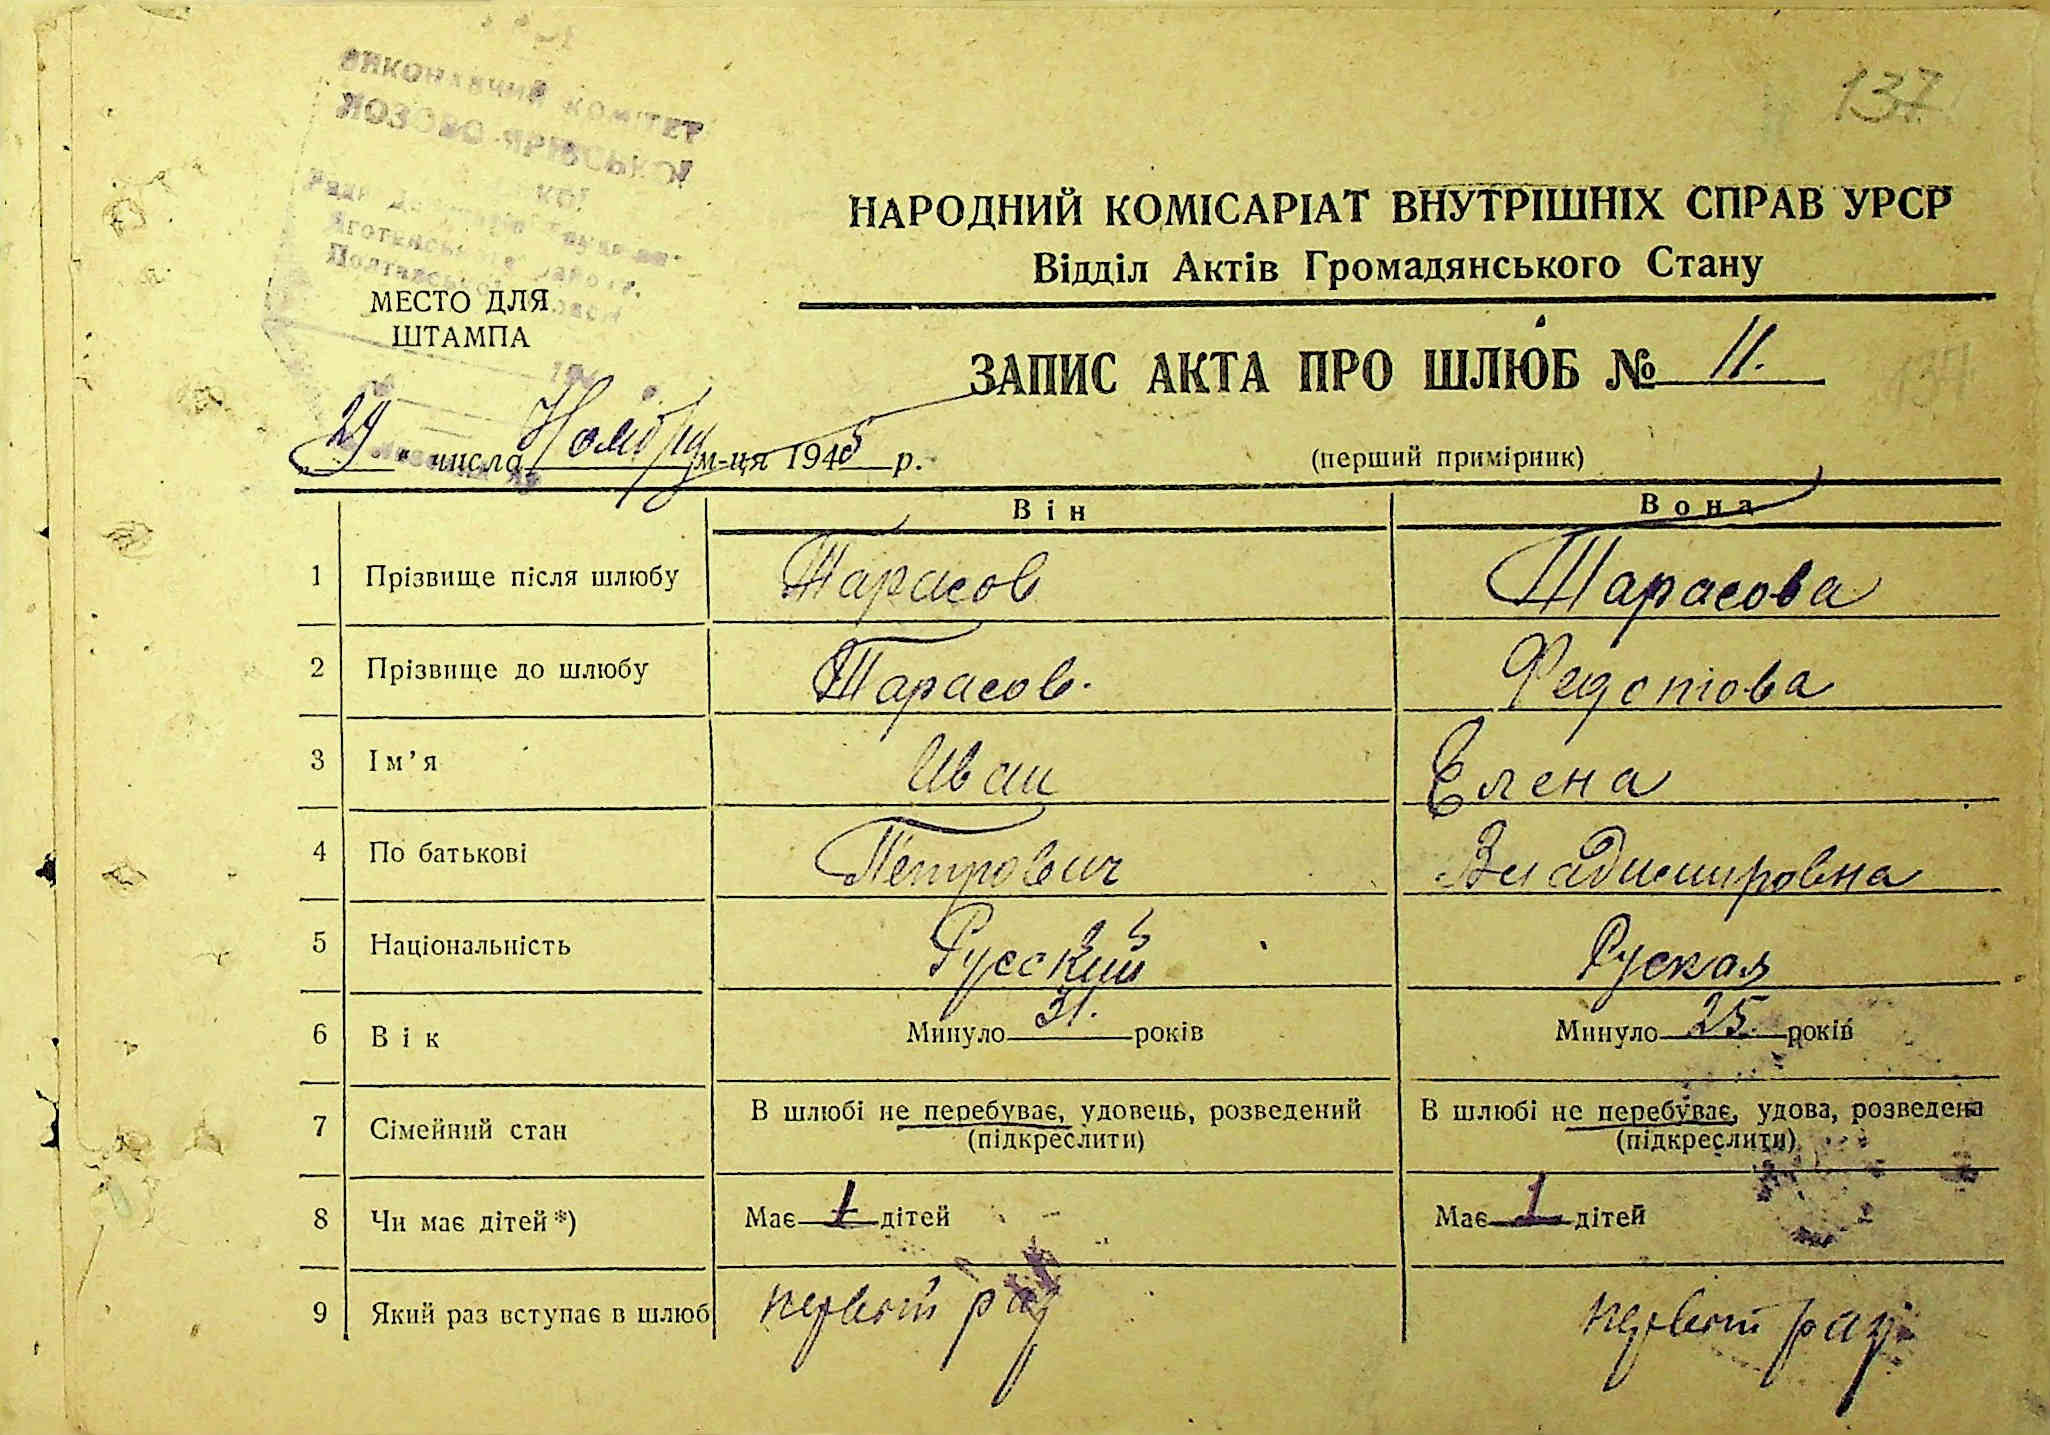 ВИКОНАВЧИЙ КОМІТЕТ
ЛОЗОВО-ЯРІВСЬКОЇ
137
Яготинського району,
Полтавської області
НАРОДНИЙ КОМІСАРІАТ ВНУТРІШНІХ СПРАВ УРСР
Відділ Актів Громадянського Стану
МЕСТО ДЛЯ
ШТАМПА
ЗАПИС АКТА ПРО ШЛЮБ № 11.
137
„29“ числа Ноября м-ця 1945 р.
(перший примірник)
Він Вона
1 Прізвище після шлюбу Тарасов Тарасова
2 Прізвище до шлюбу Тарасов. Федотова
3 Ім’я Иван Елена
4 По батькові Петрович Владимировна
5 Національність Русский Руская
6 Вік Минуло 31. років Минуло 25. років
7 Сімейний стан В шлюбі не перебуває, удовець, розведений В шлюбі не перебуває, удова, розведена
(підкреслити) (підкреслити)
8 Чи має дітей*) Має 1 дітей Має 1 дітей
9 Який раз вступає в шлюб первый раз первый раз